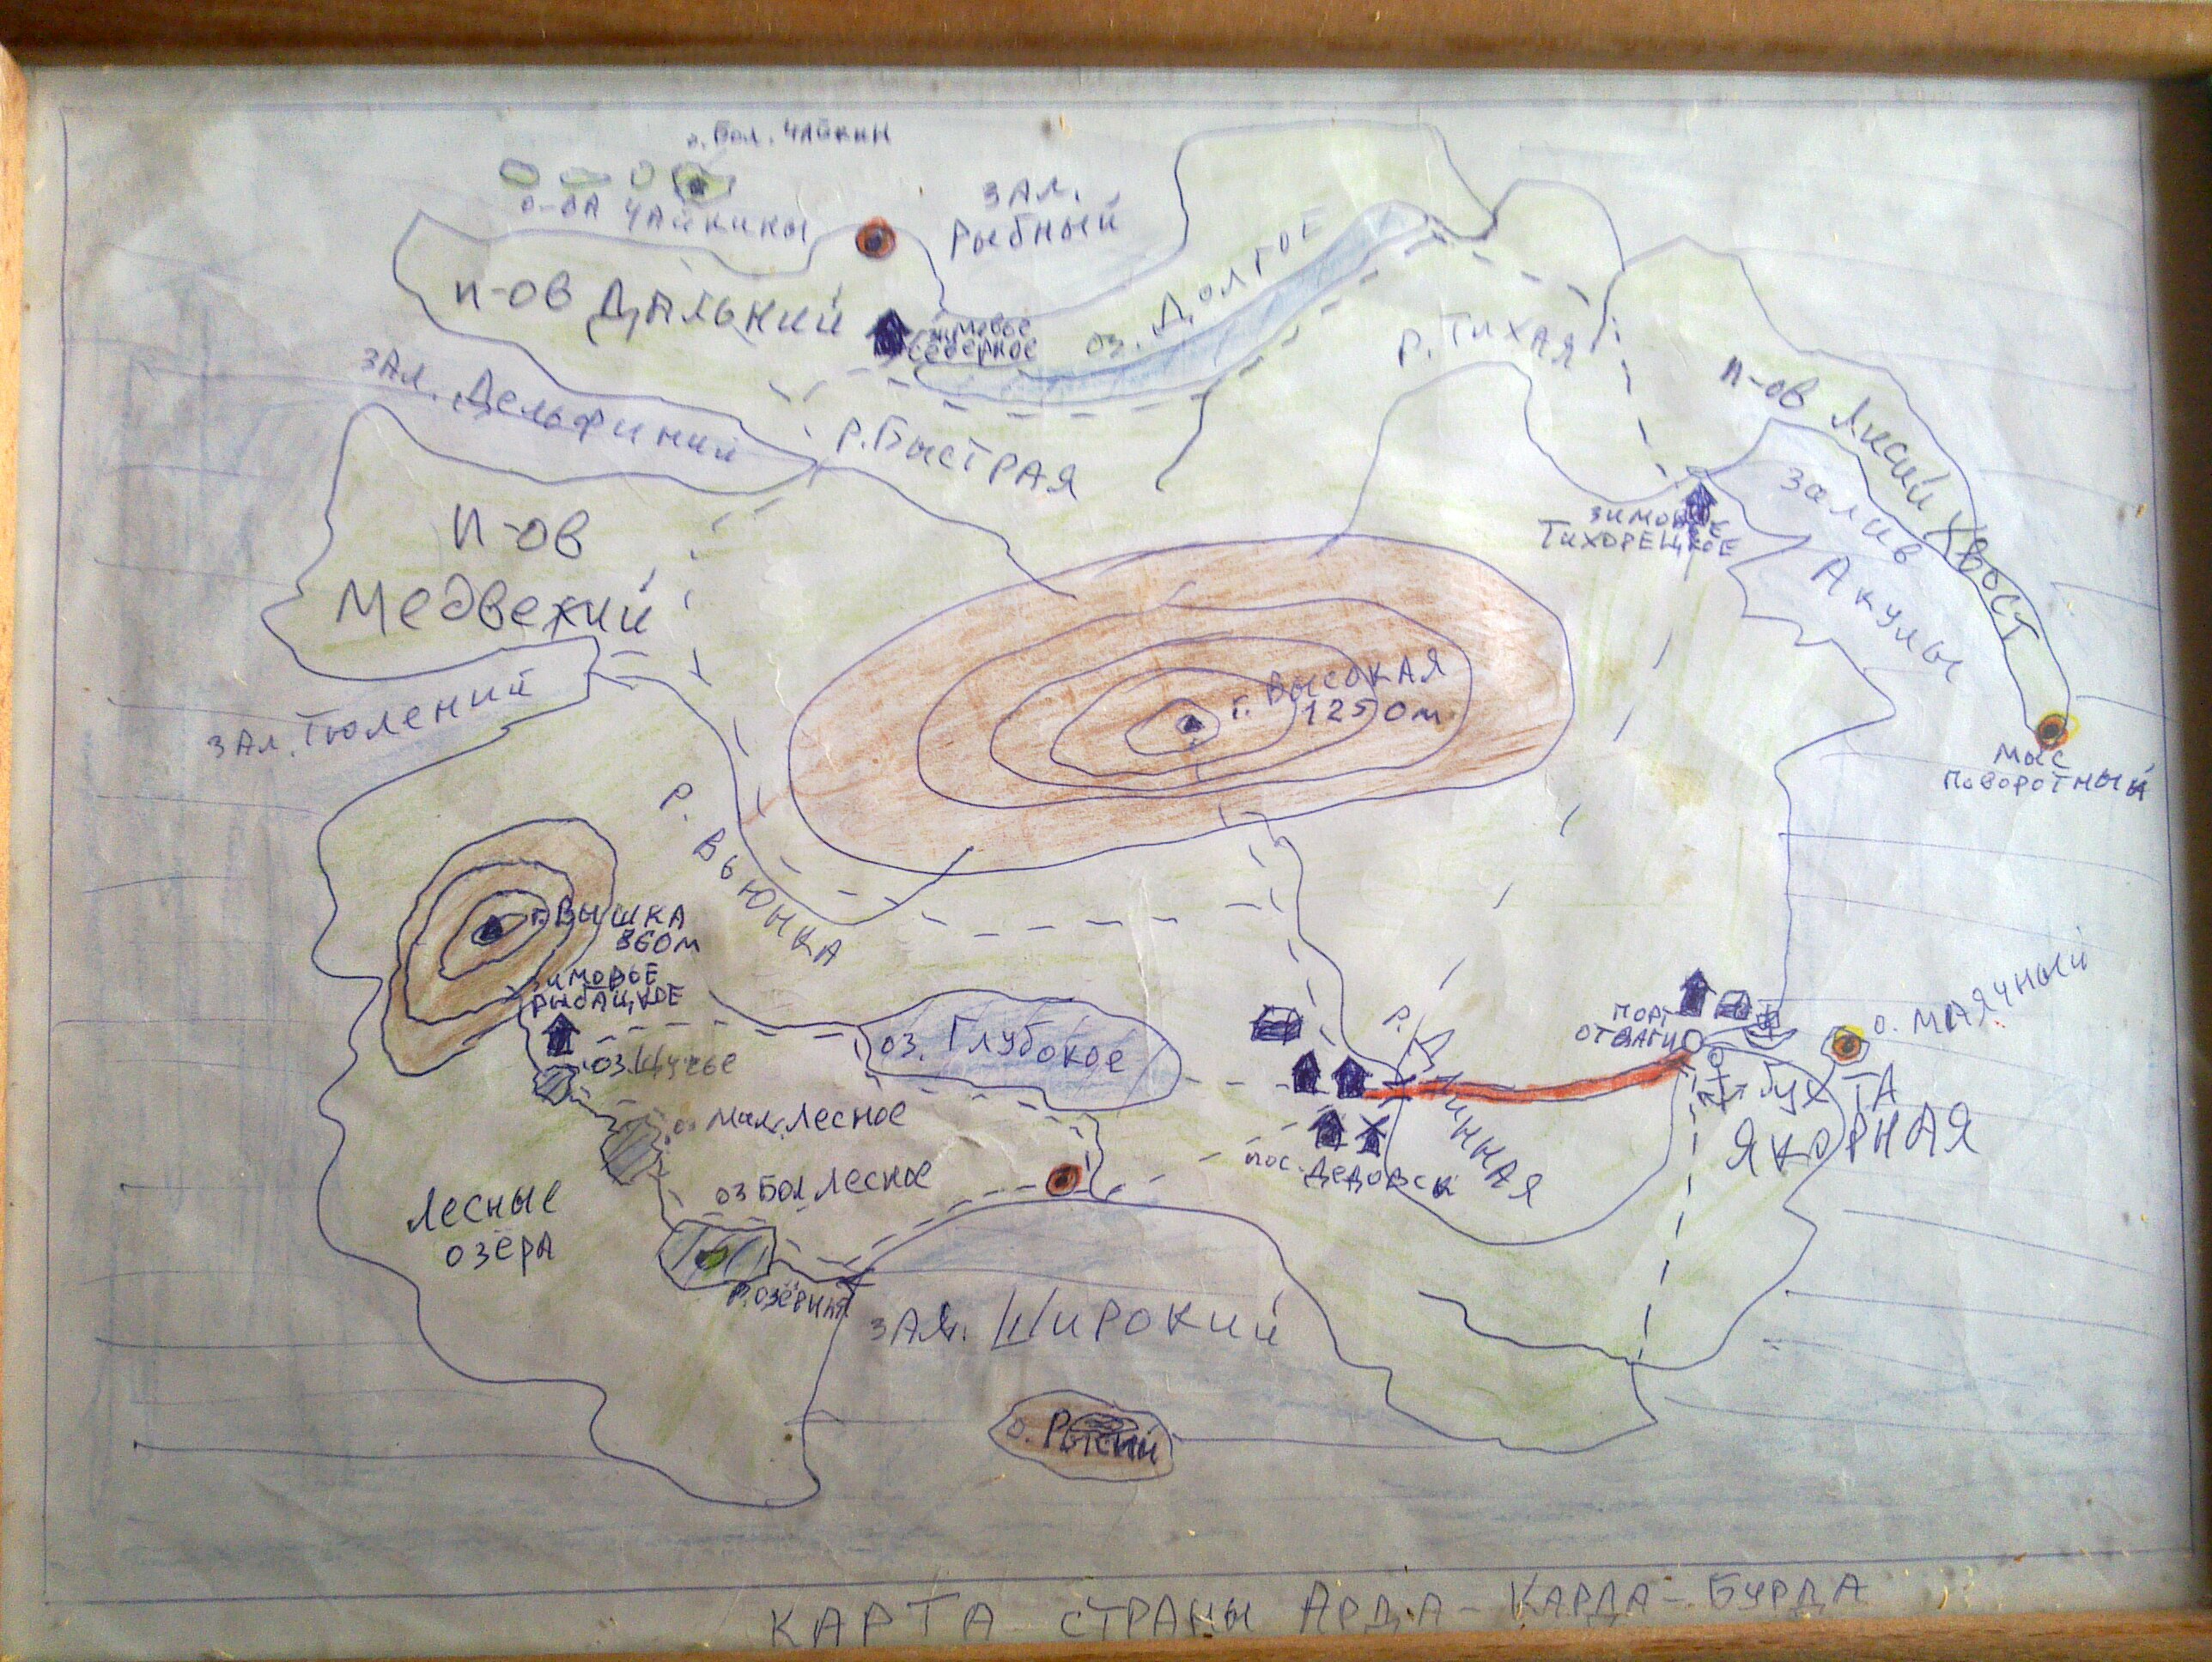 о. Бол. Чайкин
о-ва Чайкины
зал.
Рыбный
п-ов Дальний
зимовье
Северное
оз. Долгое
р. Тихая
п-ов Лисий Хвост
зал. Дельфиний
р. Быстрая
залив
Акулы
зимовье
Тихорецкое
п-ов
Медвежий
зал. Тюлений
г. Высокая
1250 м
мыс
Поворотный
р. Вьюнка
г. Вышка
860 м
зимовье
Рыбацкое
оз. Щучье
оз. Глубокое
порт
Отваги
о. Маячный
бухта
Якорная
р. Длинная
оз Мал. Лесное
пос. Дедовск
оз Бол Лесное
Лесные
озёра
р. Озёрная
зал. Широкий
о.
Карта страны Арда-Карда-Бурда